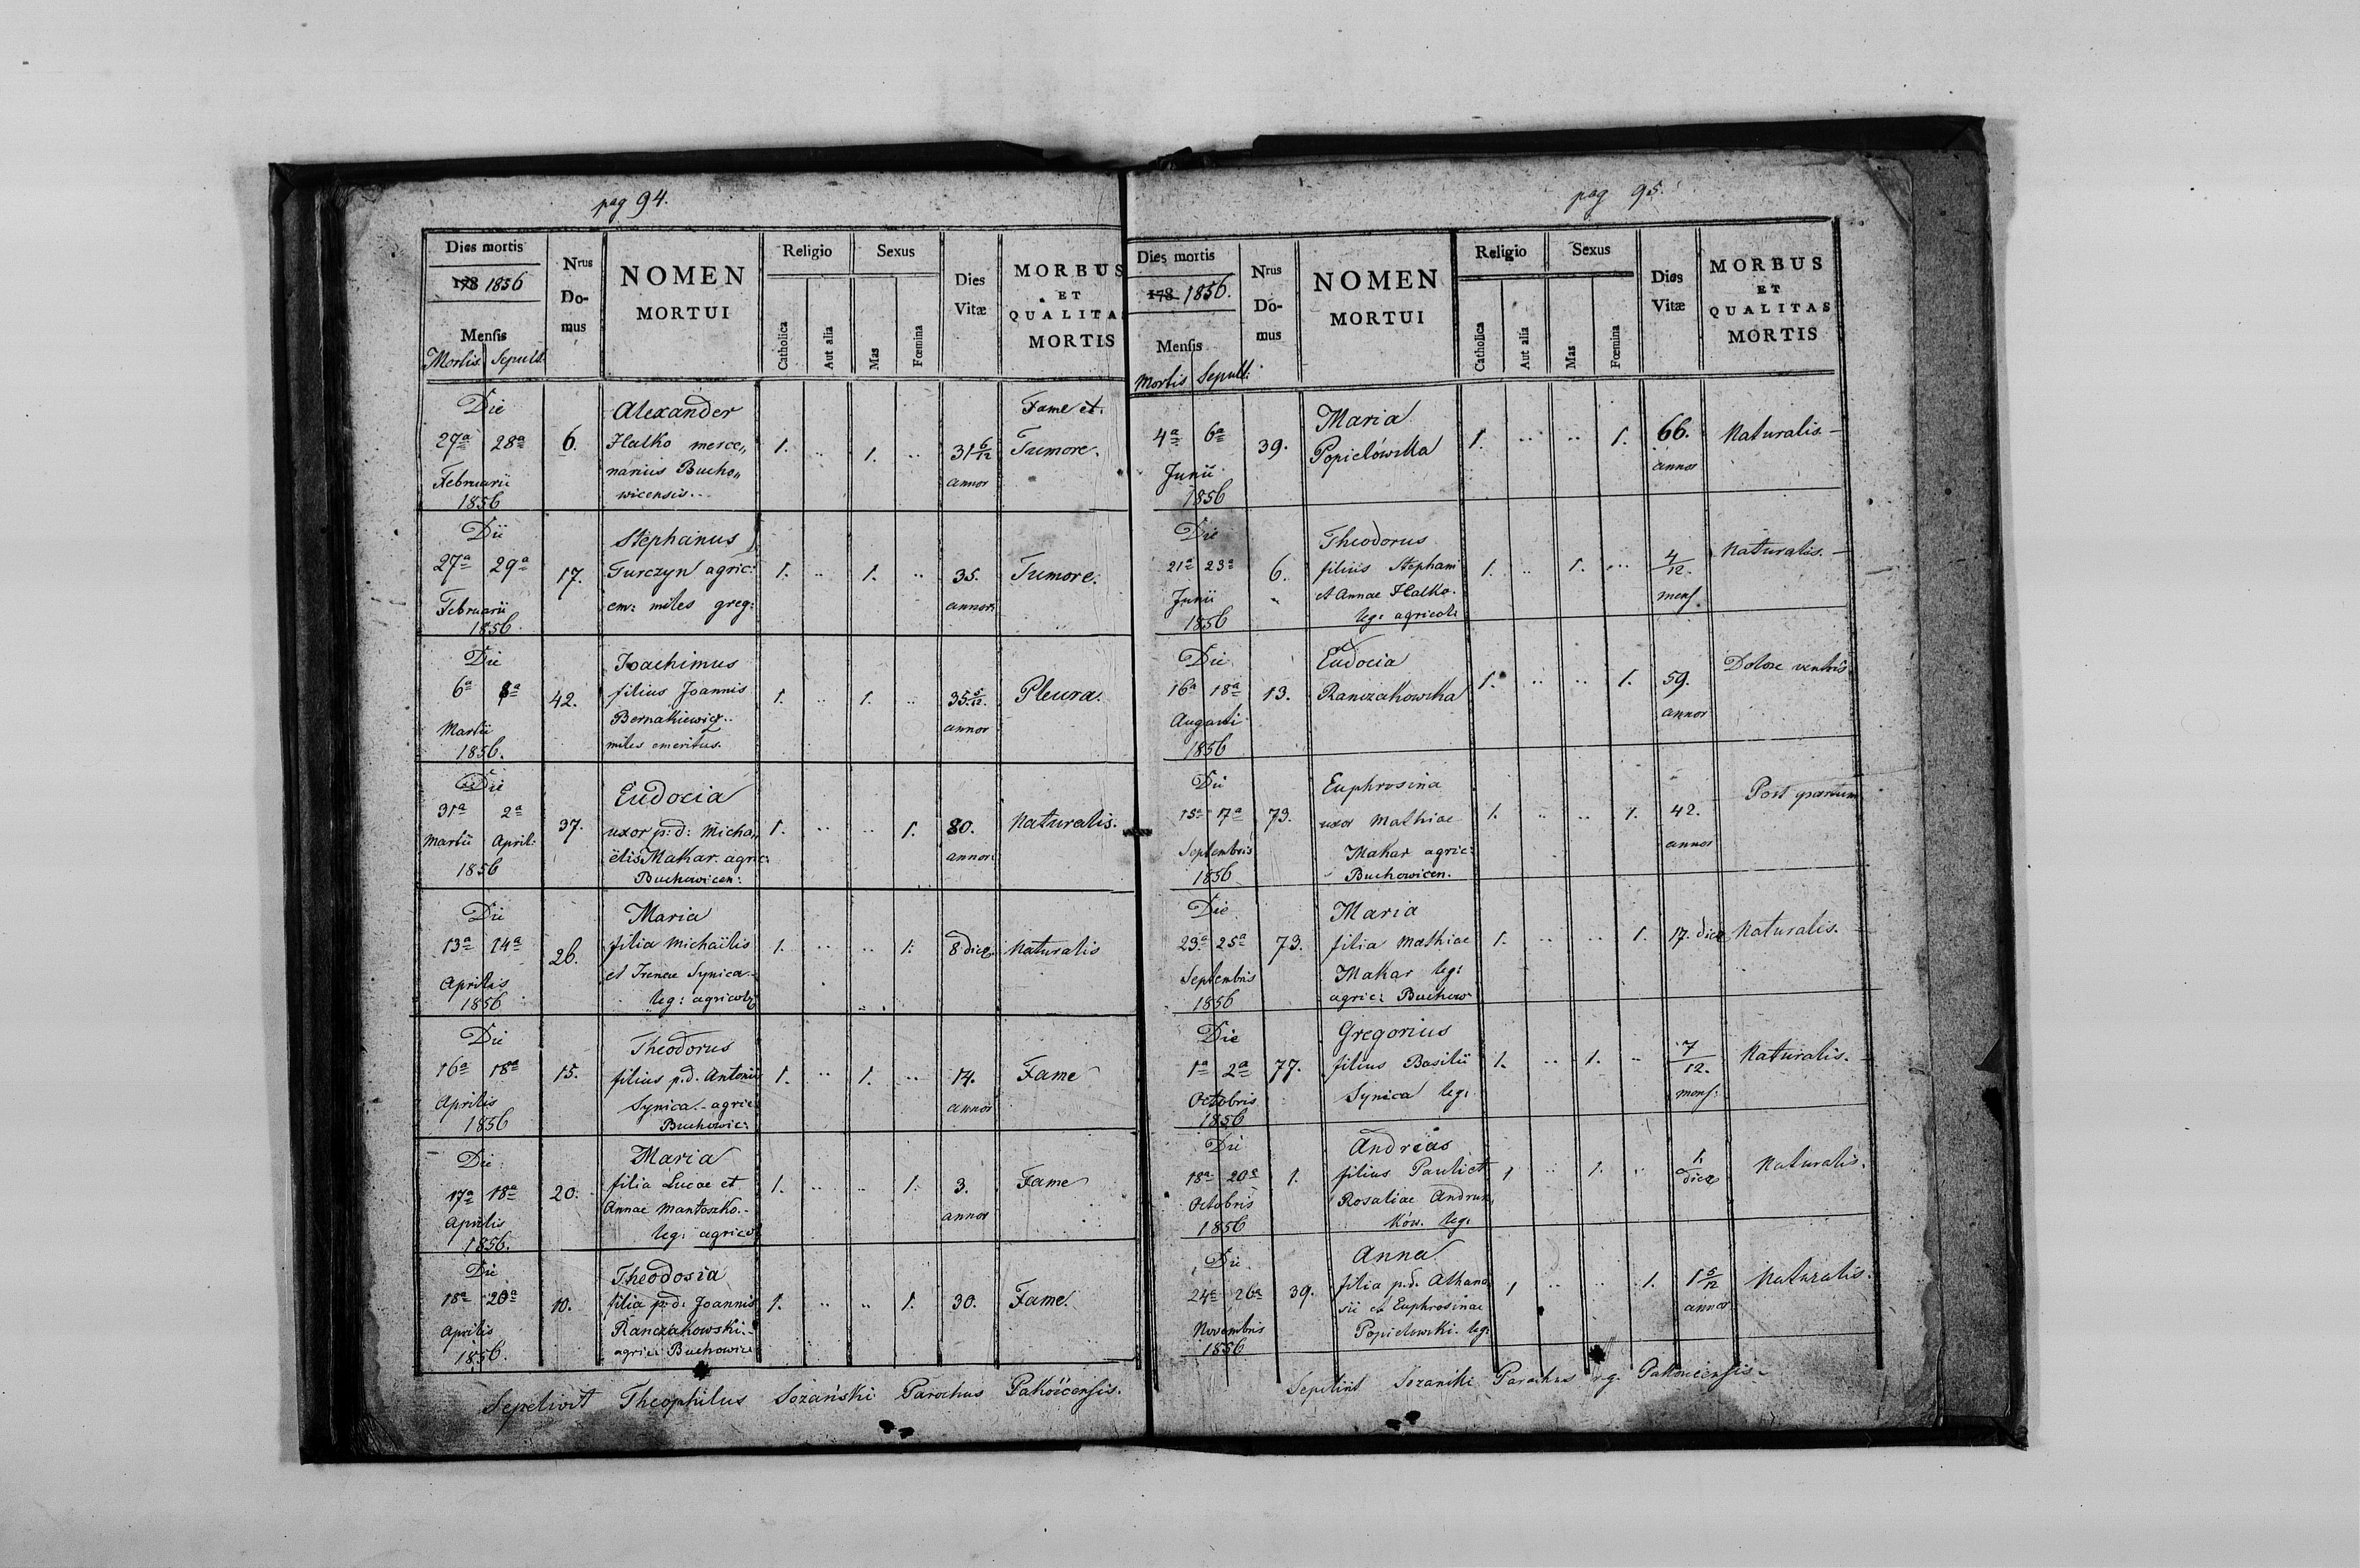 pag 94.
Dies mortis
178 1856
Mensis
Mortis Sepult:
Nrus
Do-
mus
NOMEN
MORTUI
Religio
Catholica
Aut alia
Sexus
Mas
Fœmina
Dies
Vitæ
MORBUS
ET
QUALITAS
MORTIS
Die
27a 28a
Februarii
1856
6.
Alexander
Halko merce„
narius Bucho„
wicensis..
1. .. 1. ..
31 6/12
annor
Fame et
Tumore.
Die
27a 29a
Februarii
1856.
17.
Stephanus
Turczyn agric:
em: miles greg:
1. .. 1. ..
35.
annor:
Tumore.
Die
6a 8a
Martii
1856.
42.
Joachimus
filius Joannis
Bernakiewicz..
miles emeritus.
1. .. 1. ..
35. 5/12.
annor
Pleura.
Die
31a 2a
Martii April:
1856
37.
Eudocia
uxor p: d: Micha„
ëlis Makar. agric:
Buchowicen:
1. .. .. 1.
80.
annor:
Naturalis.
Die
13a 14a
Aprilis
1856
26.
Maria
filia Michaïlis
et Irenae Synica.-
leg: agricol:
1. .. .. 1.
8 dies.
Naturalis
Die
16a 18a
Aprilis
1856
15.
Theodorus
filius p.d. Antonii
Synica.- agric:
Buchowic:
1. .. 1. ..
14.
annor
Fame
Die
17a 18a
Aprilis
1856.
20.
Maria
filia Lucae et
Annae Mantoszko.-
leg: agricol
1. .. .. 1.
3.
annor
Fame
Die
18a 20a
Aprilis
1856.
10.
Theodosia
filia p: d: Joannis
Ranczakowski.-
agric: Buchowic:
1. .. .. 1.
30.
Fame.
Sepelivit Theophilus Sozański Parochus Pakościensis.
pag 95.
Dies mortis
178 1856.
Mensis
Mortis Sepult:
Nrus
Do-
mus
NOMEN
MORTUI
Religio
Catholica
Aut alia
Sexus
Mas
Fœmina
Dies
Vitæ
MORBUS
ET
QUALITAS
MORTIS
4a 6a
Junii
1856
39.
Maria
Popielówska
1. .. .. 1.
66.
annor
Naturalis.-
Die
21a 23a
Junii
1856
6.
Theodorus
filius Stephani
et Annae Halko.
leg: agricol:
1. .. 1. ...
4/12.
mens.
Naturalis.-
Die
16a 18a
Augusti
1856
13.
Eudocia
Ranczakowska
1. .. .. 1.
59.
annor
Dolore ventris
Die
15a 17a
Septembris
1856
73.
Euphrosina
uxor Mathiae
Makar agric:
Buchowicen.
1. .. .. 1.
42.
annor
Post partum
Die
23a 25a
Septembris
1856
73.
Maria
filia Mathiae
Makar leg:
agric: Buchow
1. .. .. 1.
17. dies
Naturalis.
Die
1a 2a
Octobris
1856
77.
Gregorius
filius Basilii
Synica leg:
1. .. 1. ..
7/12.
mens:
Naturalis.
Die
18a 20a
Octobris
1856
1.
Andreas
filius Pauli et
Rosaliae Andrun„
ków. leg:
1 .. 1. ..
1.
dies
Naturalis.
Die
24a 26a
Novembris
1856
39.
Anna
filia p.d. Athana„
sii et Euphrosinae
Popielowski. leg:
1 .. .. 1.
1 5/12
annor
Naturalis.
Sepelivit Sozański Parochus Pakościensis.-